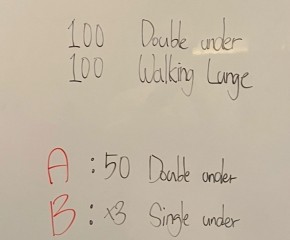 100 Double under
100 Walking Lunge
A : 50 Double under
B : x3 Single under